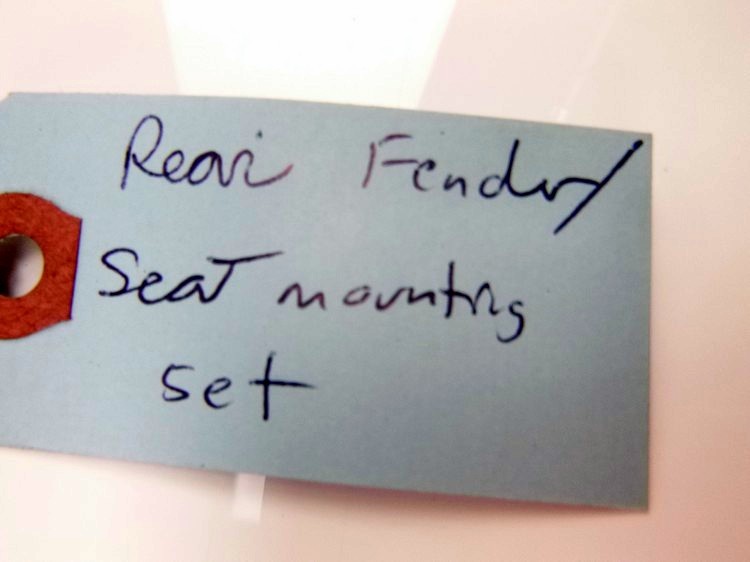 Rear Fender/
Seat mounting
set